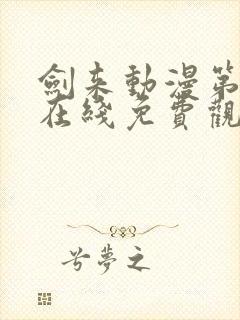 劍來動漫第
在綫免費觀
兮夢之